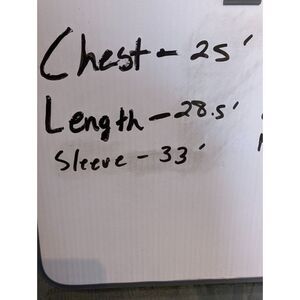 Chest - 25'
Length - 28.5'
Sleeve - 33'